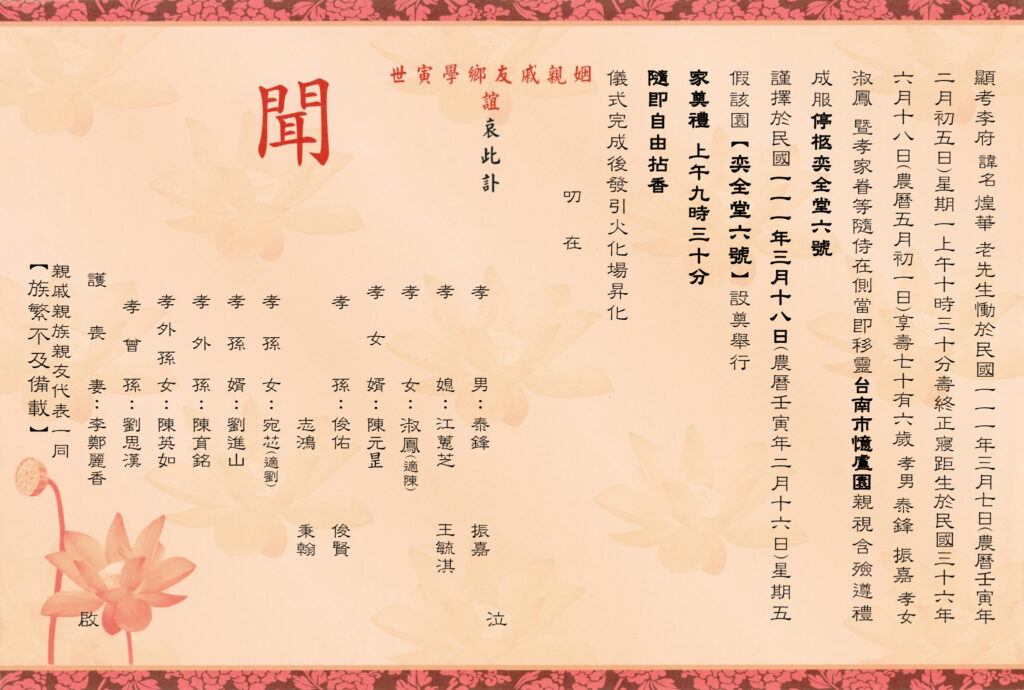 顯考李府 諱名 煌華 老先生慟於民國一一一年三月七日(農曆壬寅年
二月初五日)星期一上午十時三十分壽終正寢距生於民國三十六年
六月十八日(農曆五月初一日)享壽七十有六歲 孝男 泰鋒 振嘉 孝女
淑鳳 暨孝家眷等隨侍在側當即移靈台南市憶廬園親視含殮遵禮
成服停柩奕全堂六號
謹擇於民國一一一年三月十八日(農曆壬寅年二月十六日)星期五
假該園【奕全堂六號】設奠舉行
家奠禮 上午九時三十分
隨即自由拈香
儀式完成後發引火化場昇化
叨在
姻親戚友鄉學寅世
誼哀此訃
聞
孝男：泰鋒 振嘉
孝媳：江蔥芝 王毓淇
孝女：淑鳳(適陳)
孝女婿：陳元昰
孝孫：俊佑 俊賢
志鴻 秉翰
孝孫女：宛芯(適劉)
孝孫婿：劉進山
孝外孫：陳育銘
孝外孫女：陳英如
孝曾孫：劉思漢
護喪妻：李鄭麗香
泣
啟
親戚親族親友代表一同
【族繁不及備載】